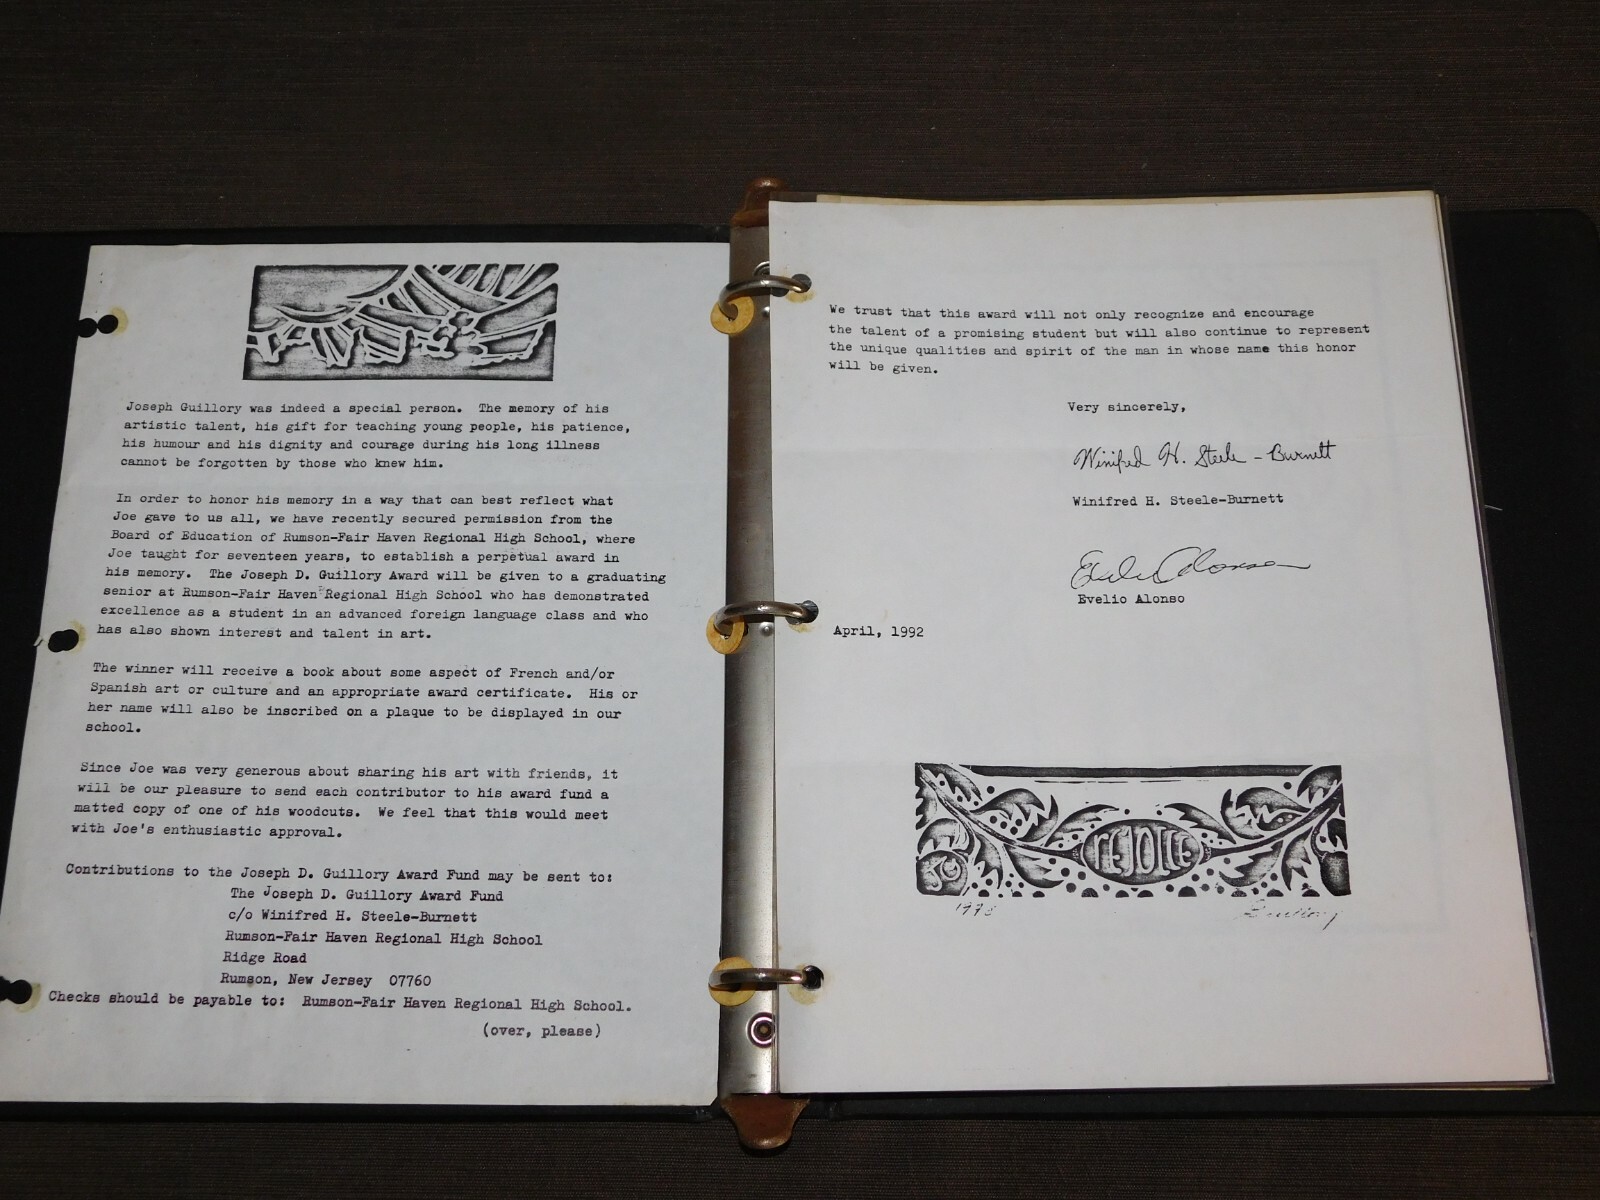 Joseph Guillory was indeed a special person. The memory of his
artistic talent, his gift for teaching young people, his patience,
his humour and his dignity and courage during his long illness
cannot be forgotten by those who knew him.
In order to honor his memory in a way that can best reflect what
Joe gave to us all, we have recently secured permission from the
Board of Education of Rumson-Fair Haven Regional High School, where
Joe taught for seventeen years, to establish a perpetual award in
his memory. The Joseph D. Guillory Award will be given to a graduating
senior at Rumson-Fair Haven Regional High School who has demonstrated
excellence as a student in an advanced foreign language class and who
has also shown interest and talent in art.
The winner will receive a book about some aspect of French and/or
Spanish art or culture and an appropriate award certificate. His or
her name will also be inscribed on a plaque to be displayed in our
school.
Since Joe was very generous about sharing his art with friends, it
will be our pleasure to send each contributor to his award fund a
matted copy of one of his woodcuts. We feel that this would meet
with Joe's enthusiastic approval.
Contributions to the Joseph D. Guillory Award Fund may be sent to:
The Joseph D. Guillory Award Fund
c/o Winifred H. Steele-Burnett
Rumson-Fair Haven Regional High School
Ridge Road
Rumson, New Jersey 07760
Checks should be payable to: Rumson-Fair Haven Regional High School.
(over, please)
We trust that this award will not only recognize and encourage
the talent of a promising student but will also continue to represent
the unique qualities and spirit of the man in whose name this honor
will be given.
Very sincerely,
Winifred H. Steele-Burnett
Winifred H. Steele-Burnett
Evelio Alonso
Evelio Alonso
April, 1992
REJOICE
JG
Guillory